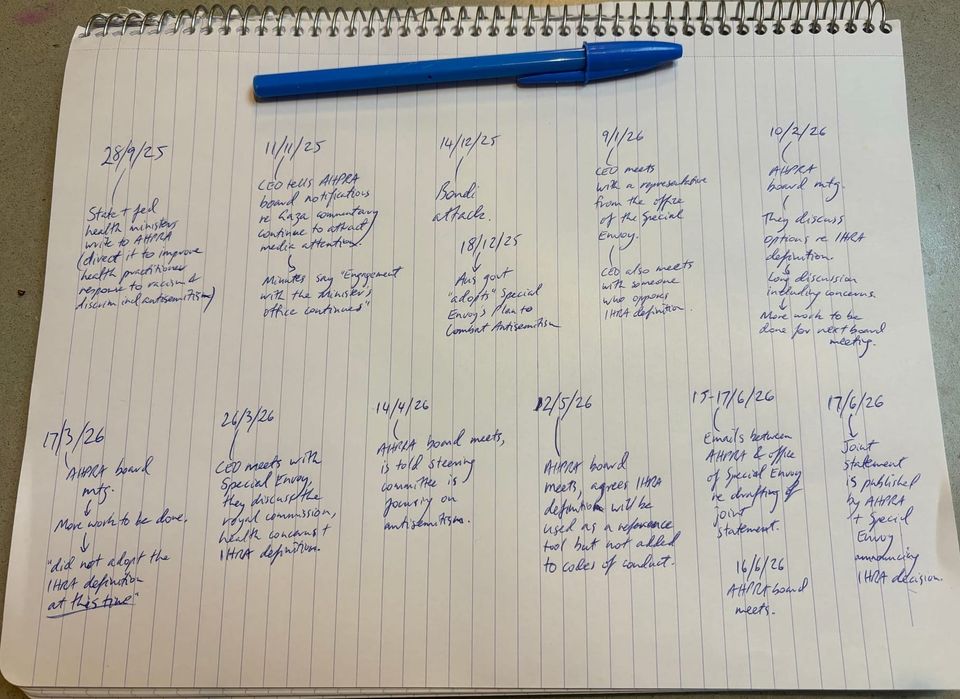 28/9/25
State + fed
health ministers
write to AHPRA
(direct it to improve
health practitioner
response to racism &
discrim incl antisemitism)
11/11/25
CEO tells AHPRA
board notifications
re Gaza commentary
continue to attract
media attention.
Minutes say "Engagement
with the Minister's
office continued"
14/12/25
Bondi
attack.
18/12/25
Aus govt
"adopts" Special
Envoy's Plan to
Combat Antisemitism
9/1/26
CEO meets
with a representative
from the office
of the Special
Envoy.
CEO also meets
with someone
who opposes
IHRA definition.
10/2/26
AHPRA
board mtg.
They discuss
options re IHRA
definition.
Long discussion
including concerns.
More work to be
done for next board
meeting.
17/3/26
AHPRA board
mtg.
More work to be done.
"did not adopt the
IHRA definition
at this time"
26/3/26
CEO meets with
Special Envoy,
they discuss the
royal commission,
health concerns +
IHRA definition.
14/4/26
AHPRA board meets,
is told steering
committee is
focusing on
antisemitism.
12/5/26
AHPRA board
meets, agrees IHRA
definition will be
used as a reference
tool but not added
to codes of conduct.
15-17/6/26
Emails between
AHPRA & office
of Special Envoy
re drafting of
joint
statement.
16/6/26
AHPRA board
meets.
17/6/26
Joint
statement
is published
by AHPRA
+ Special
Envoy
announcing
IHRA decision.